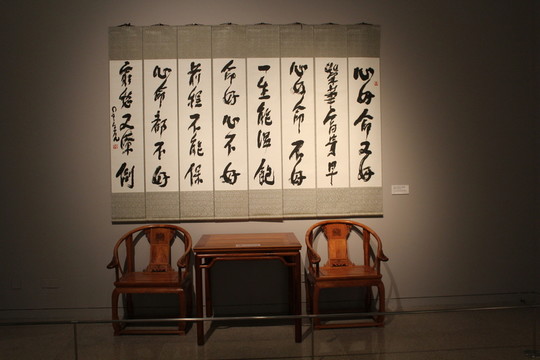 心好命又好
榮華富貴早
心好命不好
一生能溫飽
命好心不好
前程不能保
心命都不好
窮愁又潦倒